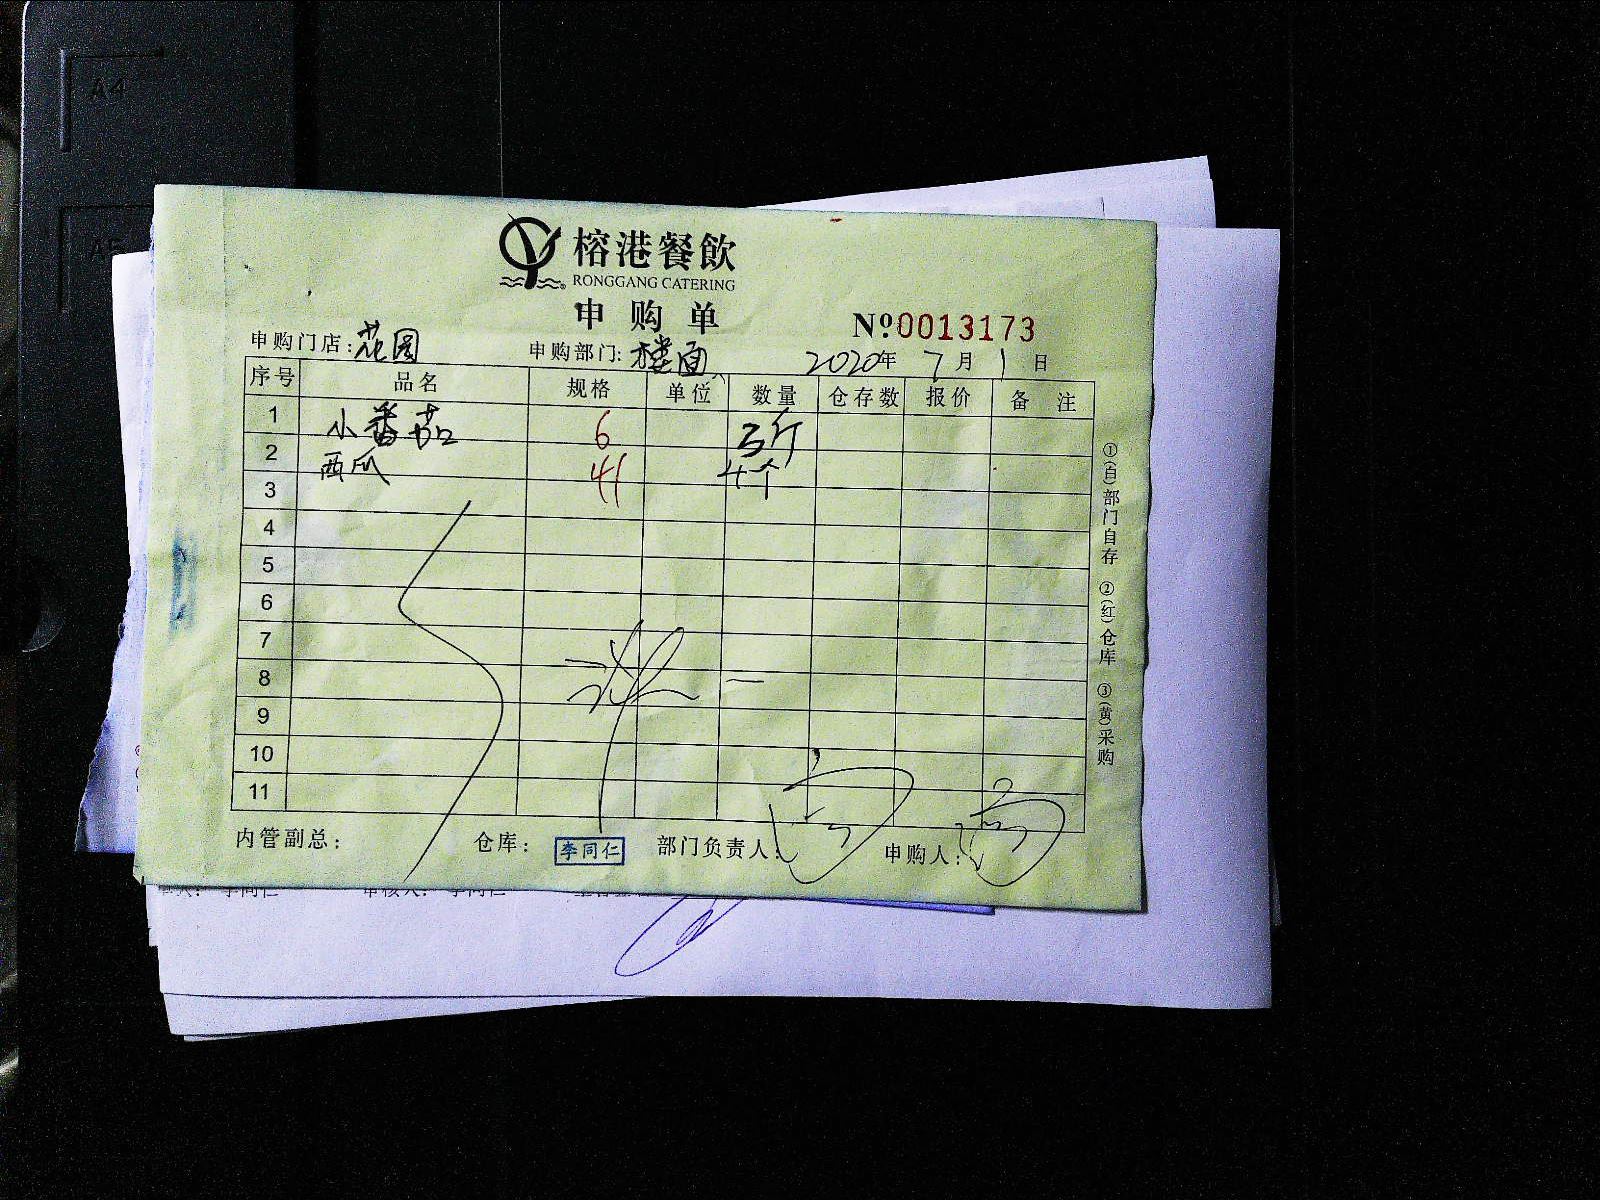 A4
A5
榕港餐飲
RONGGANG CATERING
申购单
№0013173
申购门店:花园 申购部门:楼面 2020年7月1日
序号 品名 规格 单位 数量 仓存数 报价 备注
1 小番茄 6 3斤
2 西瓜 41 4个
3
4
5
6
7
8
9
10
11
①(白)部门自存 ②(红)仓库 ③(黄)采购
内管副总: 仓库: 李同仁 部门负责人: 申购人:
李同仁 审核人: 李同仁